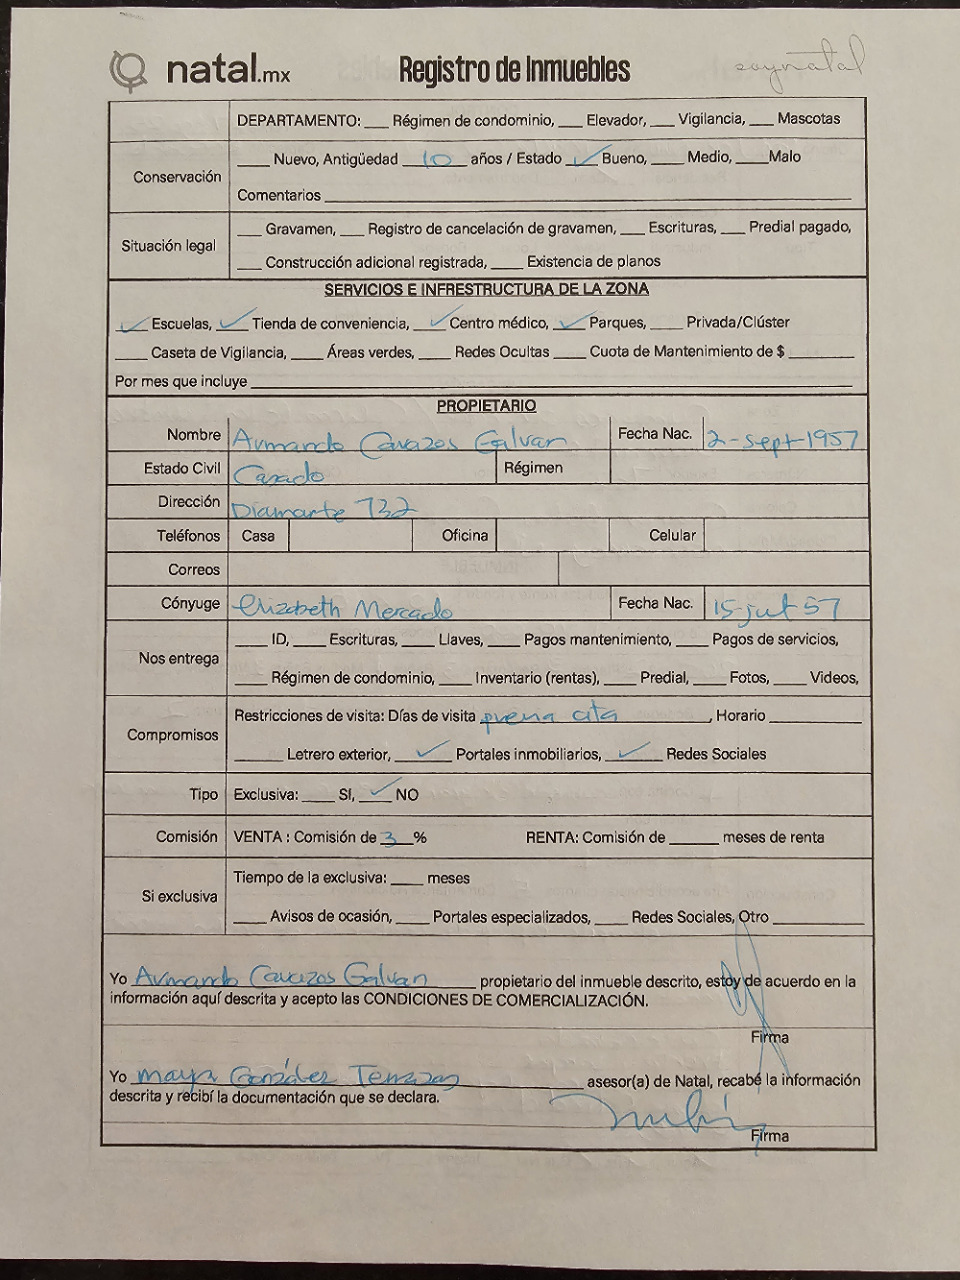 natal.mx Registro de Inmuebles soynatal
DEPARTAMENTO: ___ Régimen de condominio, ___ Elevador, ___ Vigilancia, ___ Mascotas
Conservación
____ Nuevo, Antigüedad 10 años / Estado ✓ Bueno, ____ Medio, ____Malo
Comentarios ____
Situación legal
___ Gravamen, ___ Registro de cancelación de gravamen, ___ Escrituras, ___ Predial pagado,
___ Construcción adicional registrada, ____ Existencia de planos
SERVICIOS E INFRESTRUCTURA DE LA ZONA
✓ Escuelas, ✓ Tienda de conveniencia, ✓ Centro médico, ✓ Parques, ____ Privada/Clúster
____ Caseta de Vigilancia, ____ Áreas verdes, ____ Redes Ocultas ____ Cuota de Mantenimiento de $ ____
Por mes que incluye ____
PROPIETARIO
Nombre Armando Cavazos Galvan Fecha Nac. 2-sept-1957
Estado Civil Casado Régimen
Dirección Diamante 732
Teléfonos Casa Oficina Celular
Correos
Cónyuge Elizabeth Mercado Fecha Nac. 15-jul 57
Nos entrega
____ ID, ____ Escrituras, ____ Llaves, ____ Pagos mantenimiento, ____ Pagos de servicios,
____ Régimen de condominio, ____ Inventario (rentas), ____ Predial, ____ Fotos, ____ Videos,
Compromisos
Restricciones de visita: Días de visita previa cita, Horario ____
____ Letrero exterior, ✓ Portales inmobiliarios, ✓ Redes Sociales
Tipo Exclusiva: ____ SI, ✓ NO
Comisión VENTA : Comisión de 3 % RENTA: Comisión de ____ meses de renta
Si exclusiva
Tiempo de la exclusiva: ____ meses
____ Avisos de ocasión, ____ Portales especializados, ____ Redes Sociales, Otro ____
Yo Armando Cavazos Galvan propietario del inmueble descrito, estoy de acuerdo en la
información aquí descrita y acepto las CONDICIONES DE COMERCIALIZACIÓN.
Firma
Yo Mayra González Terrazas asesor(a) de Natal, recabé la información
descrita y recibí la documentación que se declara.
Firma